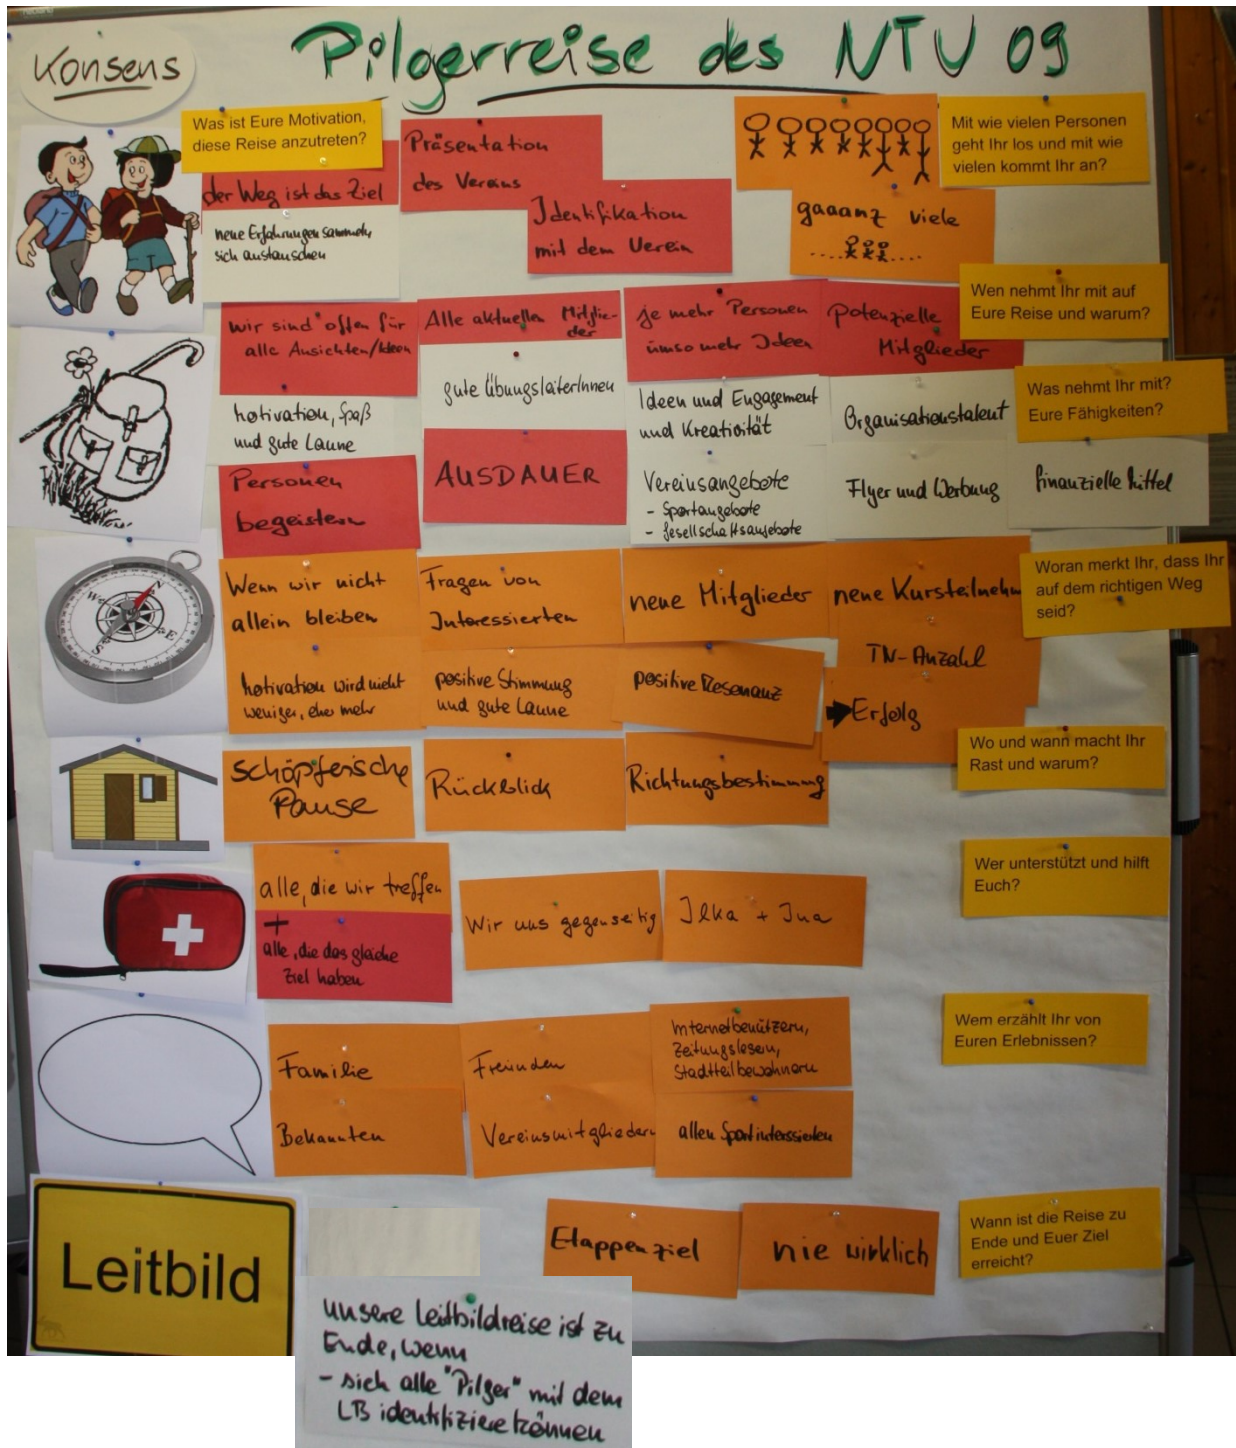 Konsens
Pilgerreise des NTU 09
Was ist Eure Motivation,
diese Reise anzutreten?
der Weg ist das Ziel
neue Erfahrungen sammeln,
sich austauschen
Präsentation
des Vereins
Identifikation
mit dem Verein
gaaanz viele
Mit wie vielen Personen
geht Ihr los und mit wie
vielen kommt Ihr an?
Wen nehmt Ihr mit auf
Eure Reise und warum?
wir sind offen für
alle Ansichten/Ideen
Alle aktuellen Mitglie-
der
je mehr Personen
umso mehr Ideen
potenzielle
Mitglieder
Was nehmt Ihr mit?
Eure Fähigkeiten?
Motivation, Spaß
und gute Laune
gute ÜbungsleiterInnen
Ideen und Engagement
und Kreativität
Organisationstalent
Personen
begeistern
AUSDAUER
Vereinsangebote
- Sportangebote
- Gesellschaftsangebote
Flyer und Werbung
finanzielle Mittel
Woran merkt Ihr, dass Ihr
auf dem richtigen Weg
seid?
Wenn wir nicht
allein bleiben
Fragen von
Interessierten
neue Mitglieder
neue Kursteilnehm
TN-Anzahl
Motivation wird nicht
weniger, eher mehr
positive Stimmung
und gute Laune
positive Resonanz
Erfolg
Wo und wann macht Ihr
Rast und warum?
schöpferische
Pause
Rückblick
Richtungsbestimmung
Wer unterstützt und hilft
Euch?
alle, die wir treffen
+
alle, die das gleiche
Ziel haben
Wir uns gegenseitig
Ilka + Ina
Wem erzählt Ihr von
Euren Erlebnissen?
Familie
Freunden
Internetbenützern,
Zeitungslesern,
Stadtteilbewohnern
Bekannten
Vereinsmitgliedern
allen Sportinterssierten
Wann ist die Reise zu
Ende und Euer Ziel
erreicht?
Leitbild
Etappenziel
nie wirklich
unsere Leitbildreise ist zu
Ende, wenn
- sich alle "Pilger" mit dem
LB identifiziere können